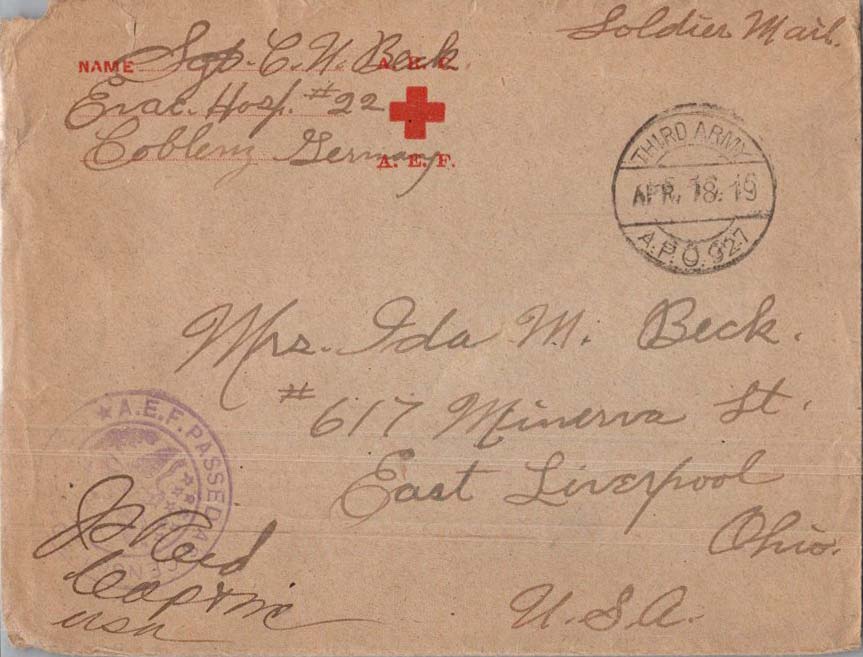 Soldier Mail.
NAME Sgt. C. N. Beck
Evac. Hosp. #22
Coblenz Germany
A. E. F.
THIRD ARMY
APR. 18. 19
A.P.O. 927
Mrs. Ida M. Beck.
# 617 Minerva St.
East Liverpool
Ohio.
U.S.A.
A.E.F. PASSED AS CEN
Reed
Capt MC
USA